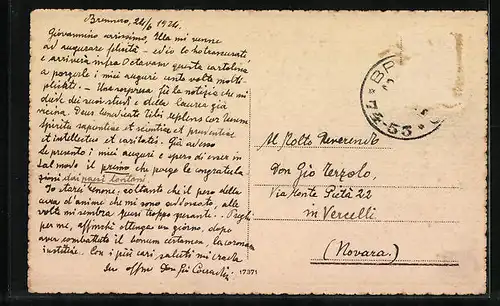 Brennero, 24/6 1924.
Giovannino carissimo, Ella mi venne
ad augurare felicità - ed io ho trascurati
e arriverà infra Octavam questa cartolina
a porgole i miei auguri cento volte molti-
plicati - Una sorpresa fu la notizia che mi
diede dei suoi studi e della laurea già
vicina. Deus benedicat Tibi replens cor tuum
Spiritu sapientiae et scientiae et prudentiae
et intellectus et caritatis. Già adesso
le presento i miei auguri e spero di esser in
tal modo il primo che porge le congratula-
zioni dai paesi lontani.
Io starei benone, soltanto che il peso della
cura d'anime che mi sono addossato, alle
volte mi sembra quasi troppo pesante.. Preghi
per me, affinchè ottenga un giorno, dopo
aver combattuto il bonum certamen, la corona
iustitiae. Con i più cari saluti mi creda
Suo affmo Don Giò
17371
Al Molto Reverendo
Don Giò Terzolo,
Via Monte Pietà 22
in Vercelli
(Novara.)